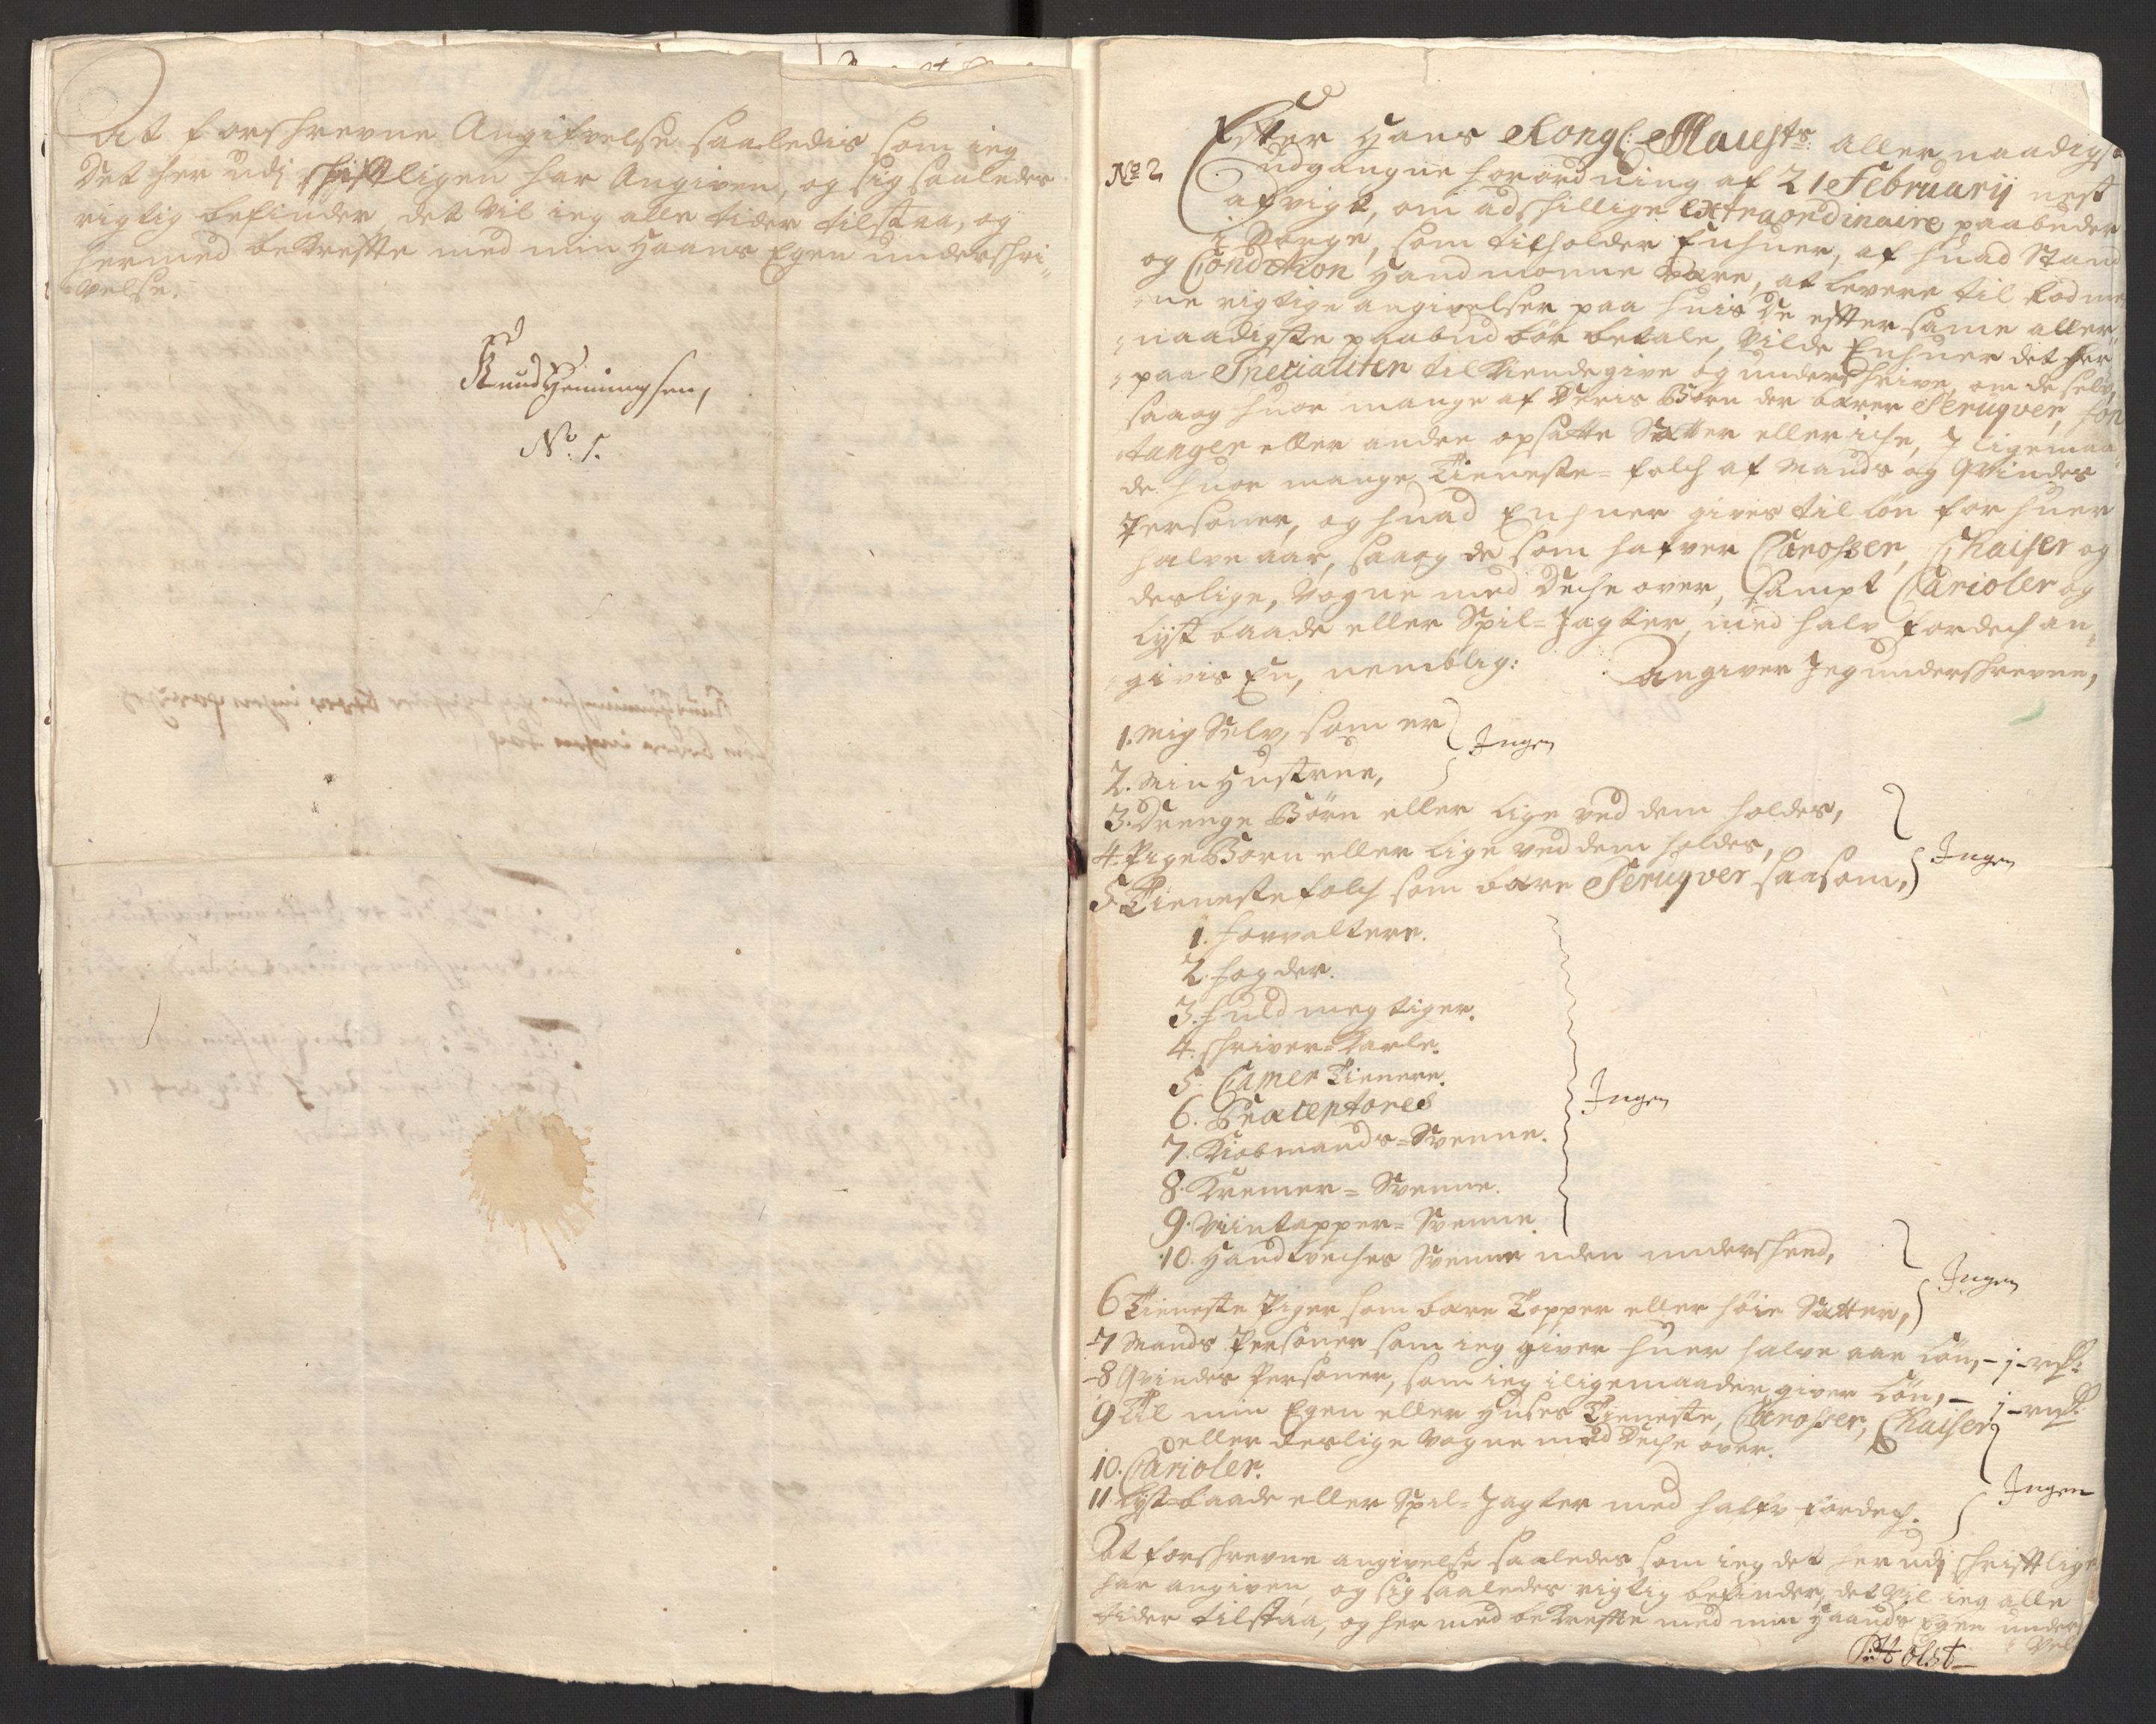 At forschrevne Angifvelse saaledis som ieg
det her udj schriftligen har Angiven, og sig saaledes
rigtig befinder, det vil ieg alle tider tilstaa, og
hermed bekreffte med min Haans Egen underschri-
velse.
Knud Henningsen,
No. 1.
No 2
Efter Hans Kongl: Mayests: aller naadigst
udgangne forordning af 21 Februarij nest
afvigt, om adschillige extraordinaire paabuder
i Norge, som tilholder Enhuer, af huad Stand
og Condition Hand monne være, at levere til
rigtige angivelser paa huis de effter samme aller-
naadigste paabud bør betale, Vilde Enhuer det her
paa Specialiter tilkiende give og underschrive, om de selv,
saa og huor mange af deris Børn der bærer Peruqver, fon
tanger eller andre opsatte Sætter eller iche, J ligemaa-
de huor mange Tieneste-folch af Mands og Qvindes
Personer, og huad Enhuer gives til løn for huer
halve aar, saa og de som hafver Carosser, Chaiser og
deslige, Vogne med deche over, sampt Carioler og
lyst baade eller Spil-Jagter, med halv fordech an-
givis En, nemblig: Angiver Jeg underschrevne,
1. Mig Selv, som er
Ingen
2. Min Hustrue,
3. Drenge Børn eller lige ved dem holdes,
4. Pige Børn eller lige ved dem holdes,
Ingen
5. Tienestefolch som bære Peruqver saasom,
1. Forvaltere.
2. Fogder.
3. Fuldmegtiger.
4. Schriver-Karle.
5. Camer Tienere.
6. Præceptores
Ingen
7. Kiøbmands-Svenne.
8. Kremer-Svenne.
9. Viintapper-Svenne.
10. Handverches Svenne uden underscheed,
Ingen
6 Tieneste Piger som bære Topper eller høie Sætter,
7 Mands Personer som ieg giver huer halve aar løn, - j - rdr:
8 Qvindes Personer, som ieg iligemaader giver løn, - j - rdr:
9 Til min Egen eller Huses Tieneste, Carosser, Chaiser
eller deslige Vogne med deche over.
10. Carioler.
Ingen
11. Lyst-baade eller Spil-Jagter med halfv fordech.
At forschrevne angivelse saaledes som ieg det her udj schrifftlige
har angiven, og sig saaledes rigtig befinder, det vil ieg alle
tider tilstaa, og her med bekreffte med min Haands Egen under
Vel
P: Holst